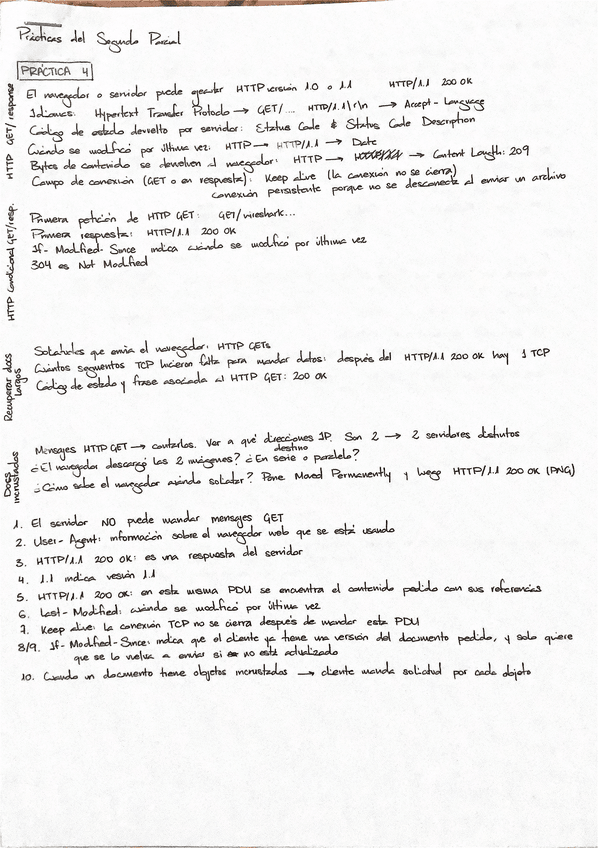 Prácticas del Segundo Parcial
PRÁCTICA 4
HTTP GET/response
El navegador o servidor puede ejecutar HTTP versión 1.0 o 1.1 HTTP/1.1 200 OK
Idiomas: Hypertext Transfer Protocolo → GET/... HTTP/1.1\r\n → Accept-Language
Código de estado devuelto por servidor: Status Code & Status Code Description
Cuándo se modificó por última vez: HTTP → HTTP/1.1 → Date
Bytes de contenido se devuelven al navegador: HTTP → → Content Length: 209
Campo de conexión (GET o en respuesta): Keep alive (la conexión no se cierra)
conexión persistente porque no se desconecta al enviar un archivo
HTTP Condicional GET/resp.
Primera petición de HTTP GET: GET/wireshark...
Primera respuesta: HTTP/1.1 200 OK
If-Modified-Since indica cuándo se modificó por última vez
304 es Not Modified
Recuperar docs largos
Solicitudes que envía el navegador: HTTP GETs
Cuántos segmentos TCP hicieron falta para mandar datos: después del HTTP/1.1 200 OK hay 1 TCP
Código de estado y frase asociada al HTTP GET: 200 OK
Docs incrustados
Mensajes HTTP GET → contarlos. Ver a qué direcciones IP. Son 2 → 2 servidores distintos
destino
¿El navegador descargó las 2 imágenes? ¿En serie o paralelo?
¿Cómo sabe el navegador cuándo solicitar? Pone Moved Permanently y luego HTTP/1.1 200 OK (PNG)
1. El servidor NO puede mandar mensajes GET
2. User-Agent: información sobre el navegador web que se está usando
3. HTTP/1.1 200 OK: es una respuesta del servidor
4. 1.1 indica versión 1.1
5. HTTP/1.1 200 OK: en esta misma PDU se encuentra el contenido pedido con sus referencias
6. Last-Modified: cuándo se modificó por última vez
7. Keep alive: la conexión TCP no se cierra después de mandar esta PDU
8/9. If-Modified-Since: indica que el cliente ya tiene una versión del documento pedido, y solo quiere
que se lo vuelva a enviar si no está actualizado
10. Cuando un documento tiene objetos incrustados → cliente manda solicitud por cada objeto